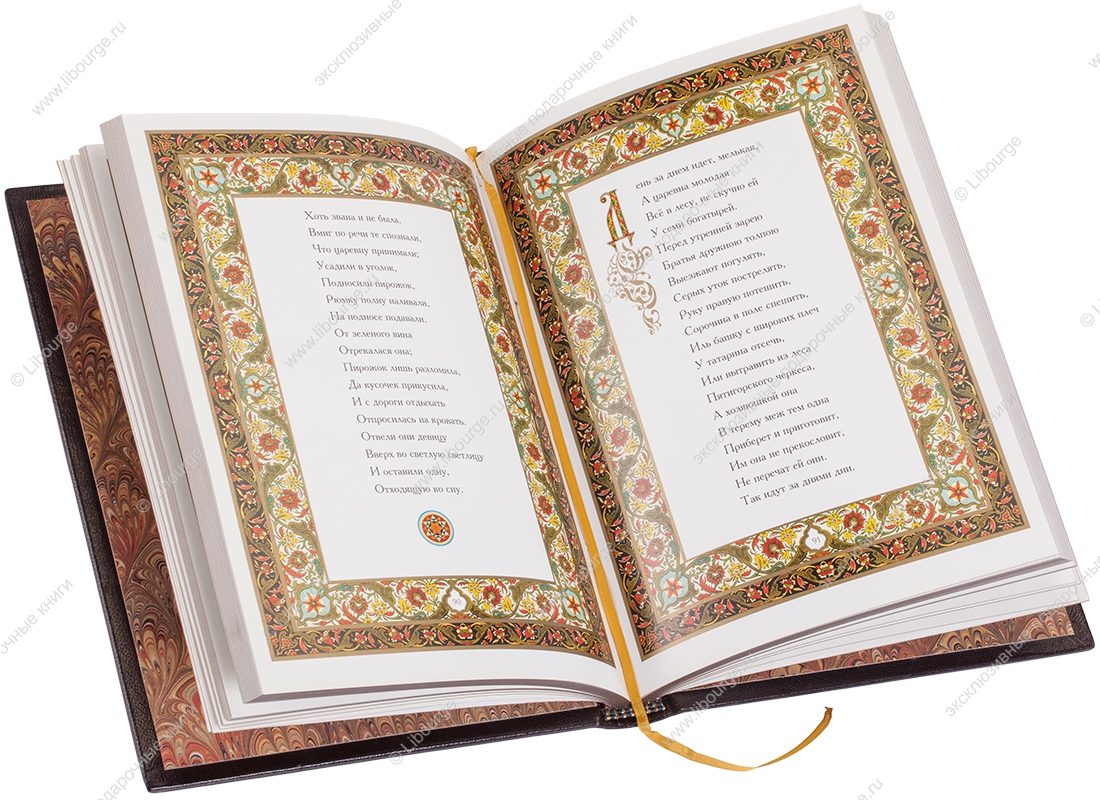 Хоть звана и не была.
Вмиг по речи те спознали,
Что царевну принимали;
Усадили в уголок,
Подносили пирожок,
Рюмку полну наливали,
На подносе подавали.
От зеленого вина
Отрекалася она;
Пирожок лишь разломила,
Да кусочек прикусила,
И с дороги отдыхать
Отпросилась на кровать.
Отвели они девицу
Вверх во светлую светлицу
И оставили одну,
Отходящую ко сну.
90
День за днем идет, мелькая,
А царевна молодая
Всё в лесу, не скучно ей
У семи богатырей.
Перед утренней зарею
Братья дружною толпою
Выезжают погулять,
Серых уток пострелять,
Руку правую потешить,
Сорочина в поле спешить,
Иль башку с широких плеч
У татарина отсечь,
Или вытравить из леса
Пятигорского черкеса,
А хозяюшкой она
В терему меж тем одна
Приберет и приготовит,
Им она не прекословит,
Не перечат ей они.
Так идут за днями дни.
91
www.libourge.ru
эксклюзивные подарочные книги
© Libourge